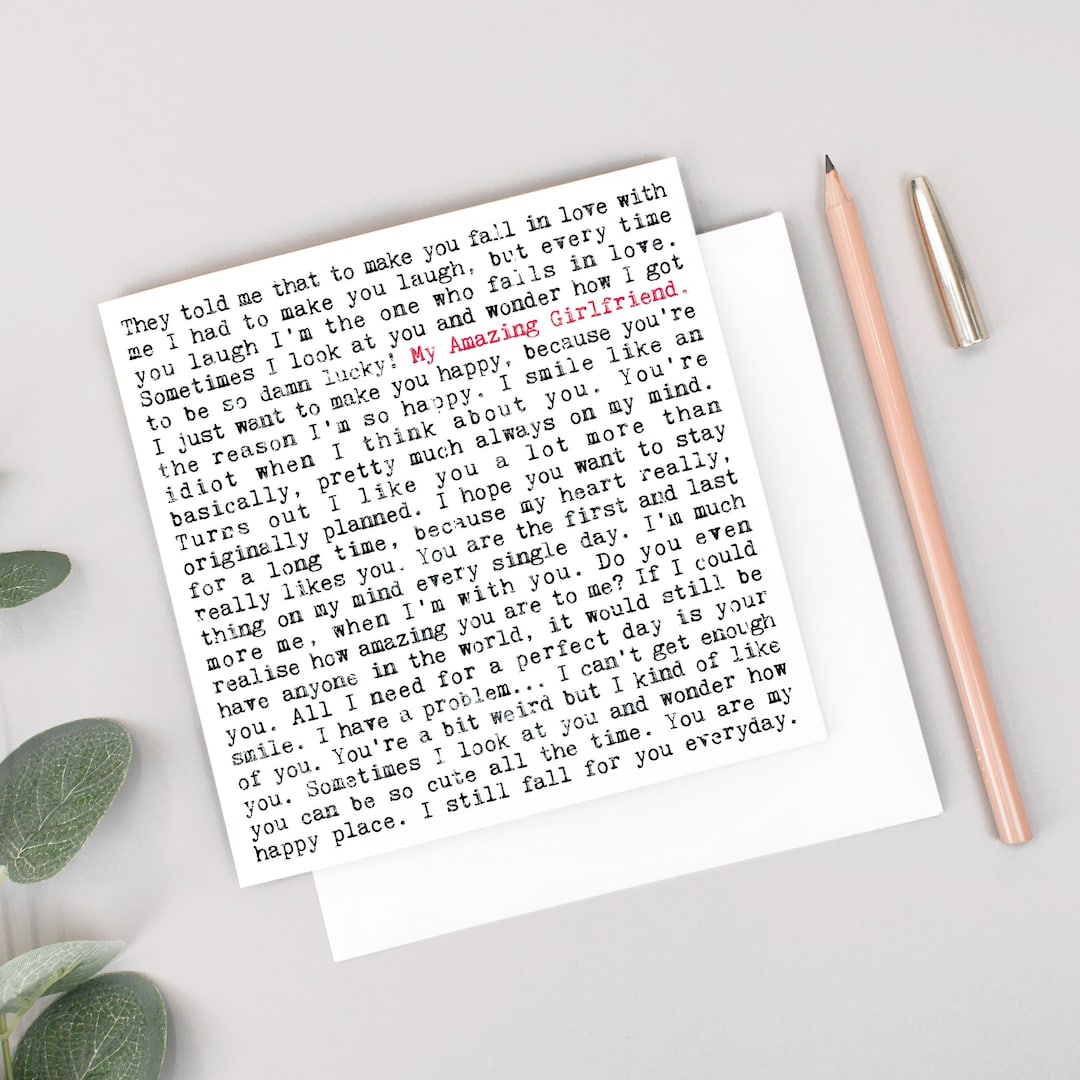 They told me that to make you fall in love with
me I had to make you laugh, but every time
you laugh I'm the one who falls in love.
Sometimes I look at you and wonder how I got
to be so damn lucky! My Amazing Girlfriend.
I just want to make you happy, because you're
the reason I'm so happy. I smile like an
idiot when I think about you. You're
basically, pretty much always on my mind.
Turns out I like you a lot more than
originally planned. I hope you want to stay
for a long time, because my heart really,
really likes you. You are the first and last
thing on my mind every single day. I'm much
more me, when I'm with you. Do you even
realise how amazing you are to me? If I could
have anyone in the world, it would still be
you. All I need for a perfect day is your
smile. I have a problem... I can't get enough
of you. You're a bit weird but I kind of like
you. Sometimes I look at you and wonder how
you can be so cute all the time. You are my
happy place. I still fall for you everyday.